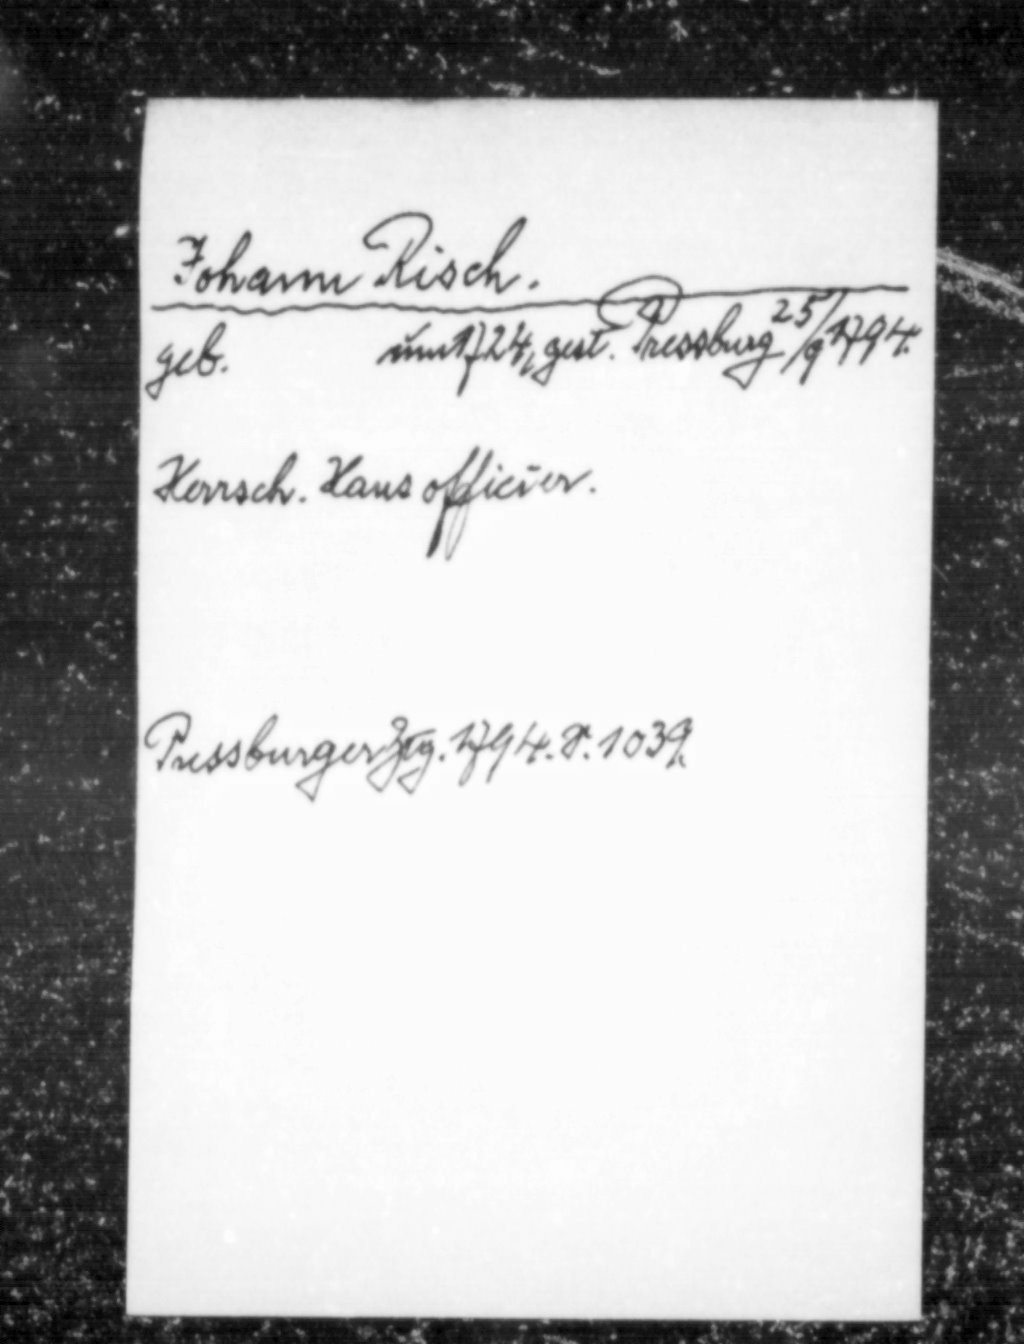 Johann Risch.
geb. um 1724, gest. Pressburg 25/9 1794.
Herrsch. Hausofficier.
Pressburger Ztg. 1794. S. 1039.